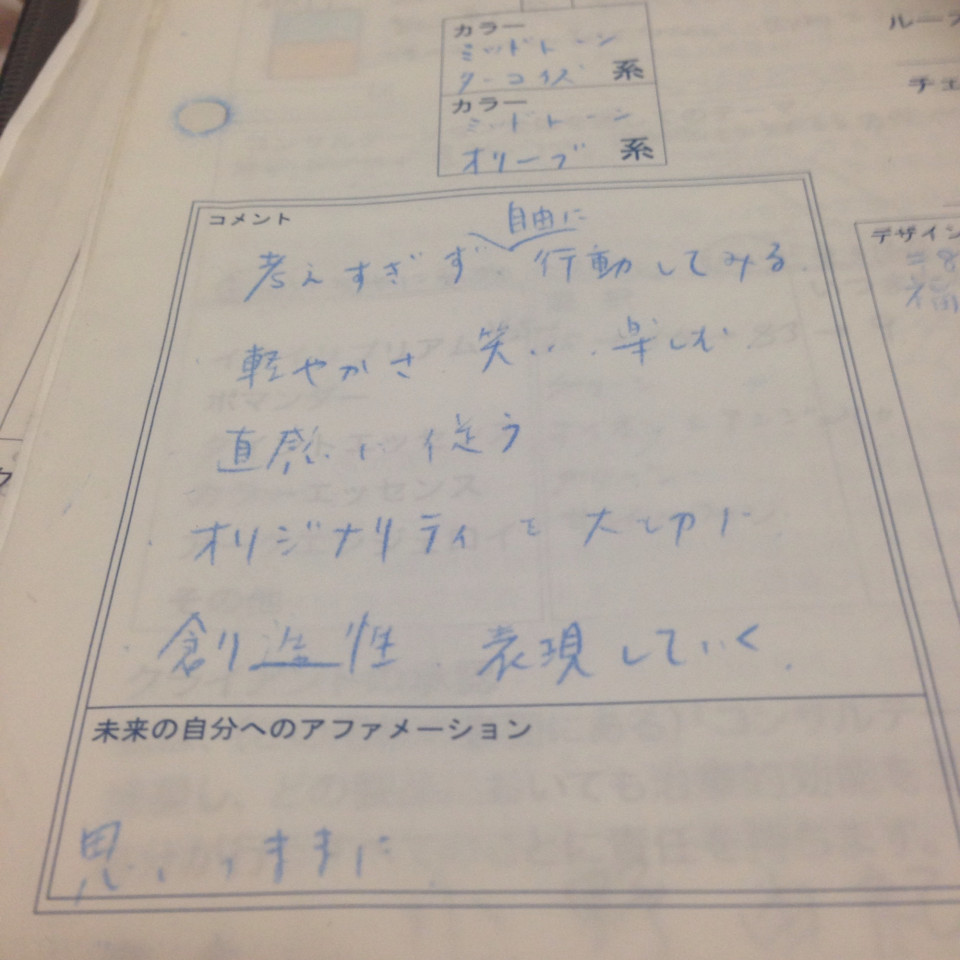 カラー
ミッドトーン
ターコイズ 系
カラー
ミッドトーン
オリーブ 系
ルース
チェ
コメント
自由に
考えすぎず 行動してみる
軽やかさ 笑... 楽しむ
直感に従う
オリジナリティを大切に
創造性 表現していく
デザイン
未来の自分へのアファメーション
思いのままに